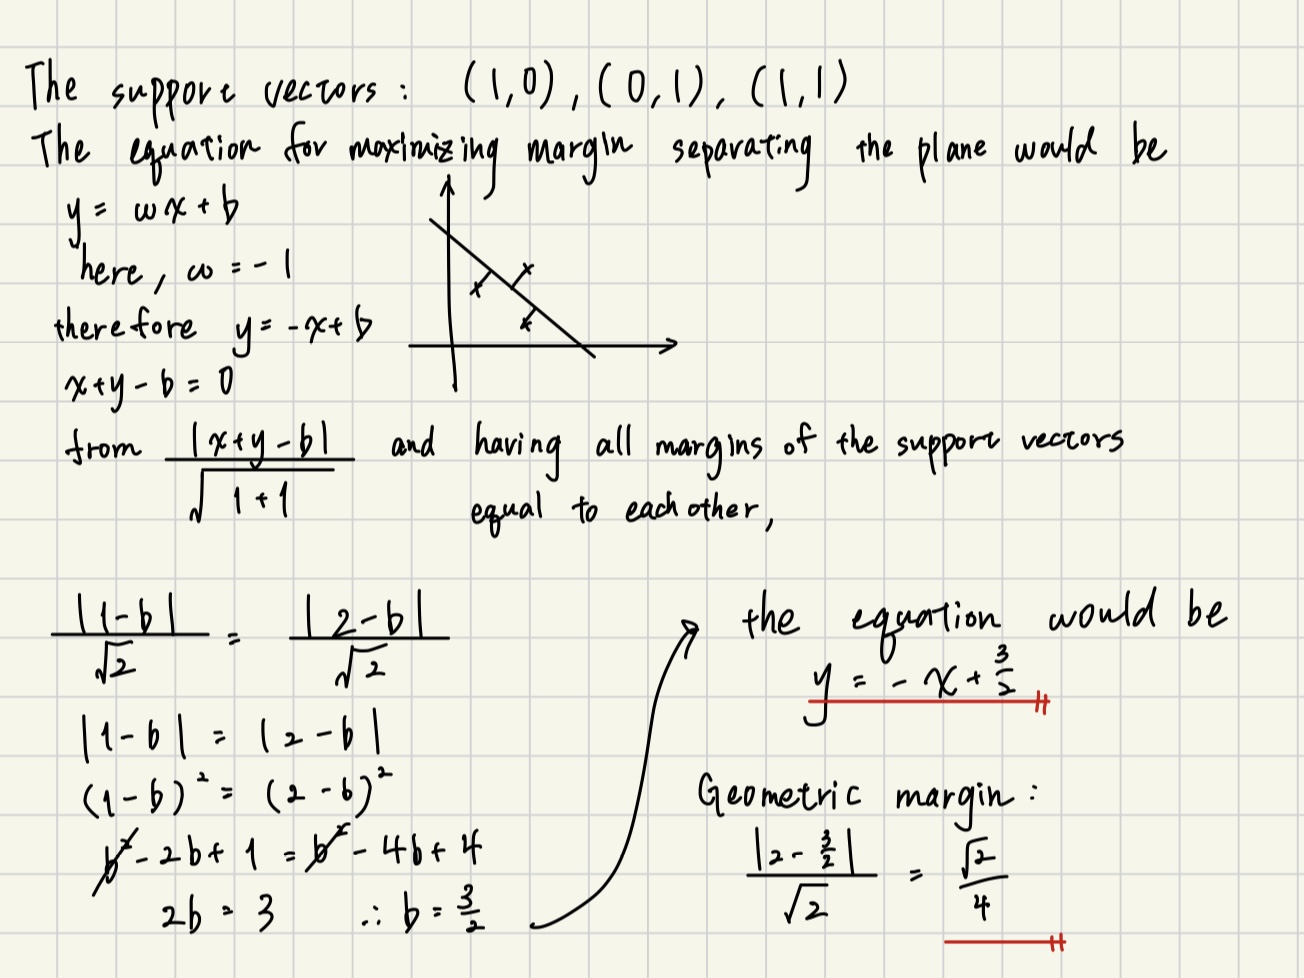 The support vectors : (1,0), (0,1), (1,1)
The equation for maximizing margin separating the plane would be
y = ωx + b
here, ω = -1
therefore y = -x+b
x+y-b = 0
from |x+y-b| / √(1+1) and having all margins of the support vectors
equal to each other,
|1-b| / √2 = |2-b| / √2
|1-b| = |2-b|
(1-b)² = (2-b)²
b² - 2b + 1 = b² - 4b + 4
2b = 3 ∴ b = 3/2
the equation would be
y = -x + 3/2
Geometric margin :
|2 - 3/2| / √2 = √2 / 4